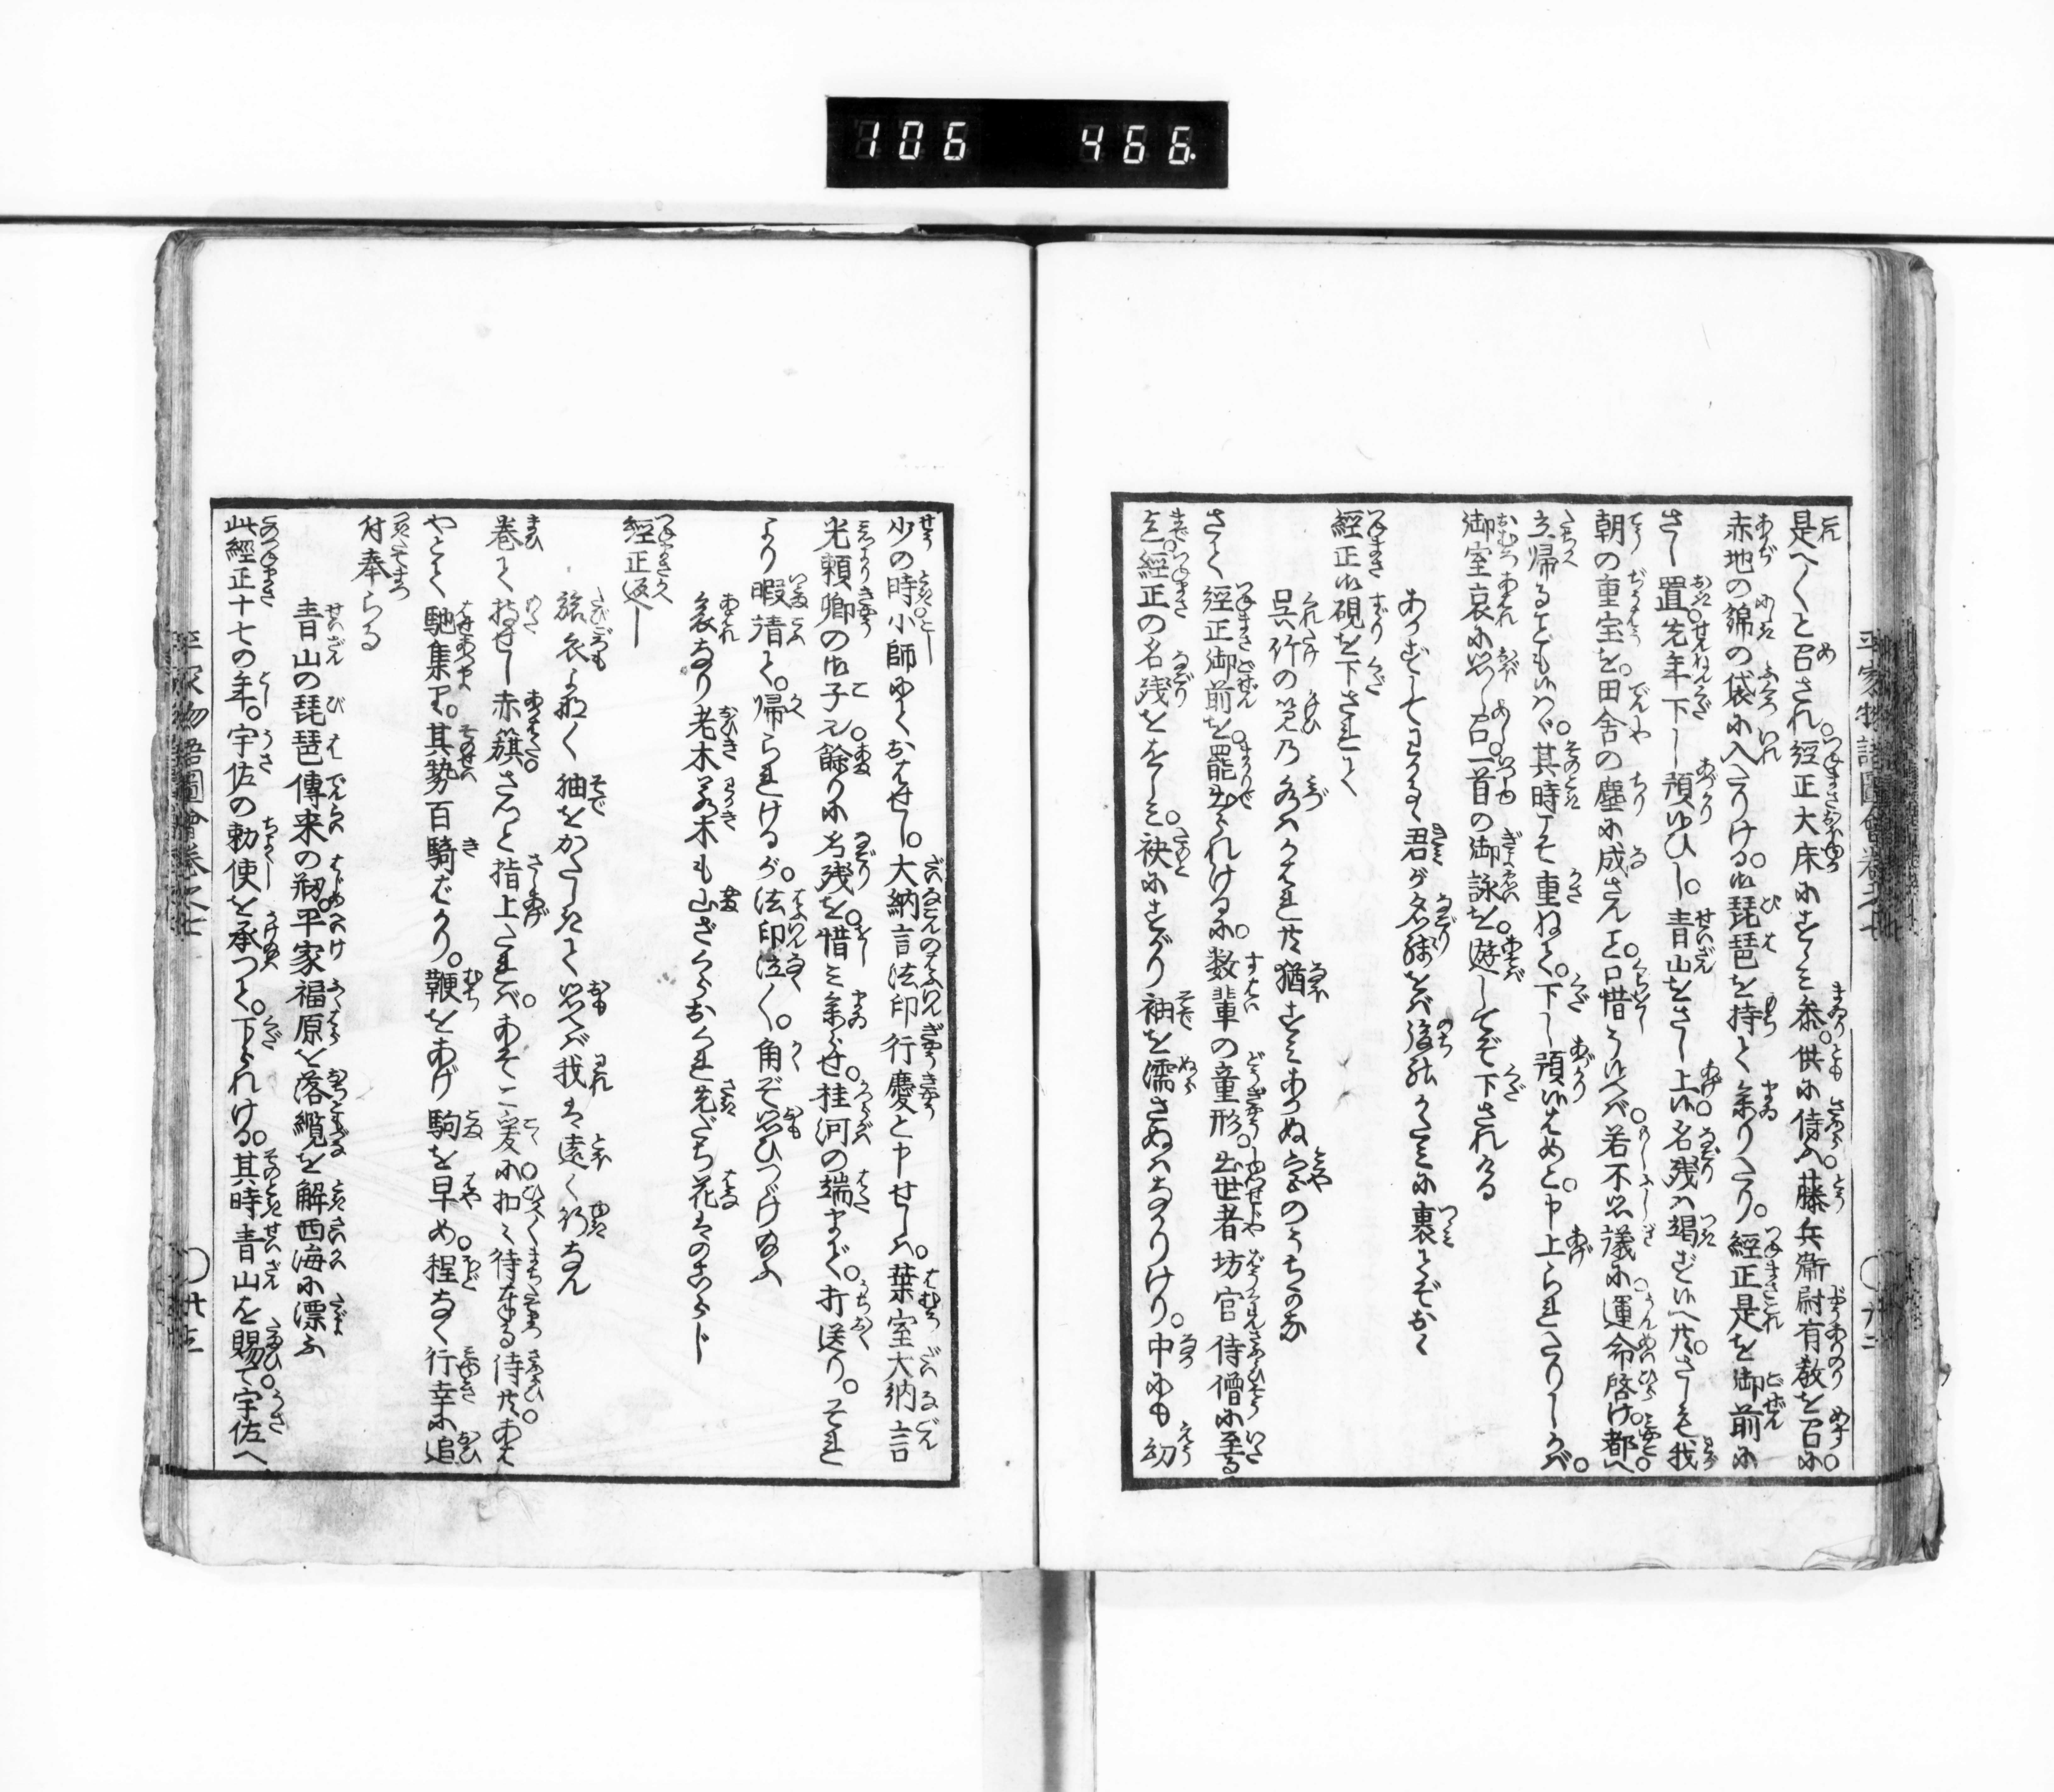 106 466.
是へ〳〵と召され。經正大床にすゝみ參。供に侍ふ。藤兵衛尉有教を召に。
赤地の錦の袋に入たりける。御琵琶を持て參りたり。經正是を御前に
さし置。先年下し預ゆひし。青山をさし上い。名残は竭ずいへ共。さしも我
朝の重宝を。田舎の塵に成さん事。口惜ういへバ。若不思議に運命啓け。都へ
立帰ることもいハヾ。其時こそ重ねて。下し預いはめと。申上られたりしかバ。
御室哀に思し召。一首の御詠を。遊してぞ下されける
あかずしてわかるゝ君が名残をバ後のかたミに裹てぞおく
經正御硯を下されて
呉竹の筧乃水ハかはれ共猶すミあかぬ宮のうちかな
さて經正御前を。罷出られけるに。数輩の童形。出世者坊官侍僧に至る
迄。經正の名残ををしミ。袂にすがり袖を濡さぬハなかりけり。中にも幼
平家物語圖會卷之七 〇廿二
少の時小師にておはせし。大納言法印行慶と申せしハ。葉室大納言
光頼卿の御子也。餘りに名残を。惜ミ參らせ。桂河の端まで。打送り。それ
より暇請て。帰られけるが。法印泣〳〵。角ぞ思ひつゞけ給ふ
哀なり老木若木も山ざくらおくれ先だち花はのこらじ
經正返し
旅衣よな〳〵袖をかたしきて思へバ我は遠く行なん
巻て持せし赤籏。さつと指上たれバ。あそこ爰に。扣へ待奉る侍共。あはや
とて馳集り。其勢百騎ばかり。鞭をあげ駒を早め。程なく行幸に追
付奉らる
青山の琵琶傳来の初平家福原を落纜を解西海に漂ふ
此經正十七の年。宇佐の勅使を承つて。下られける。其時青山を賜て。宇佐へ
平家物語圖會卷之七 〇廿三